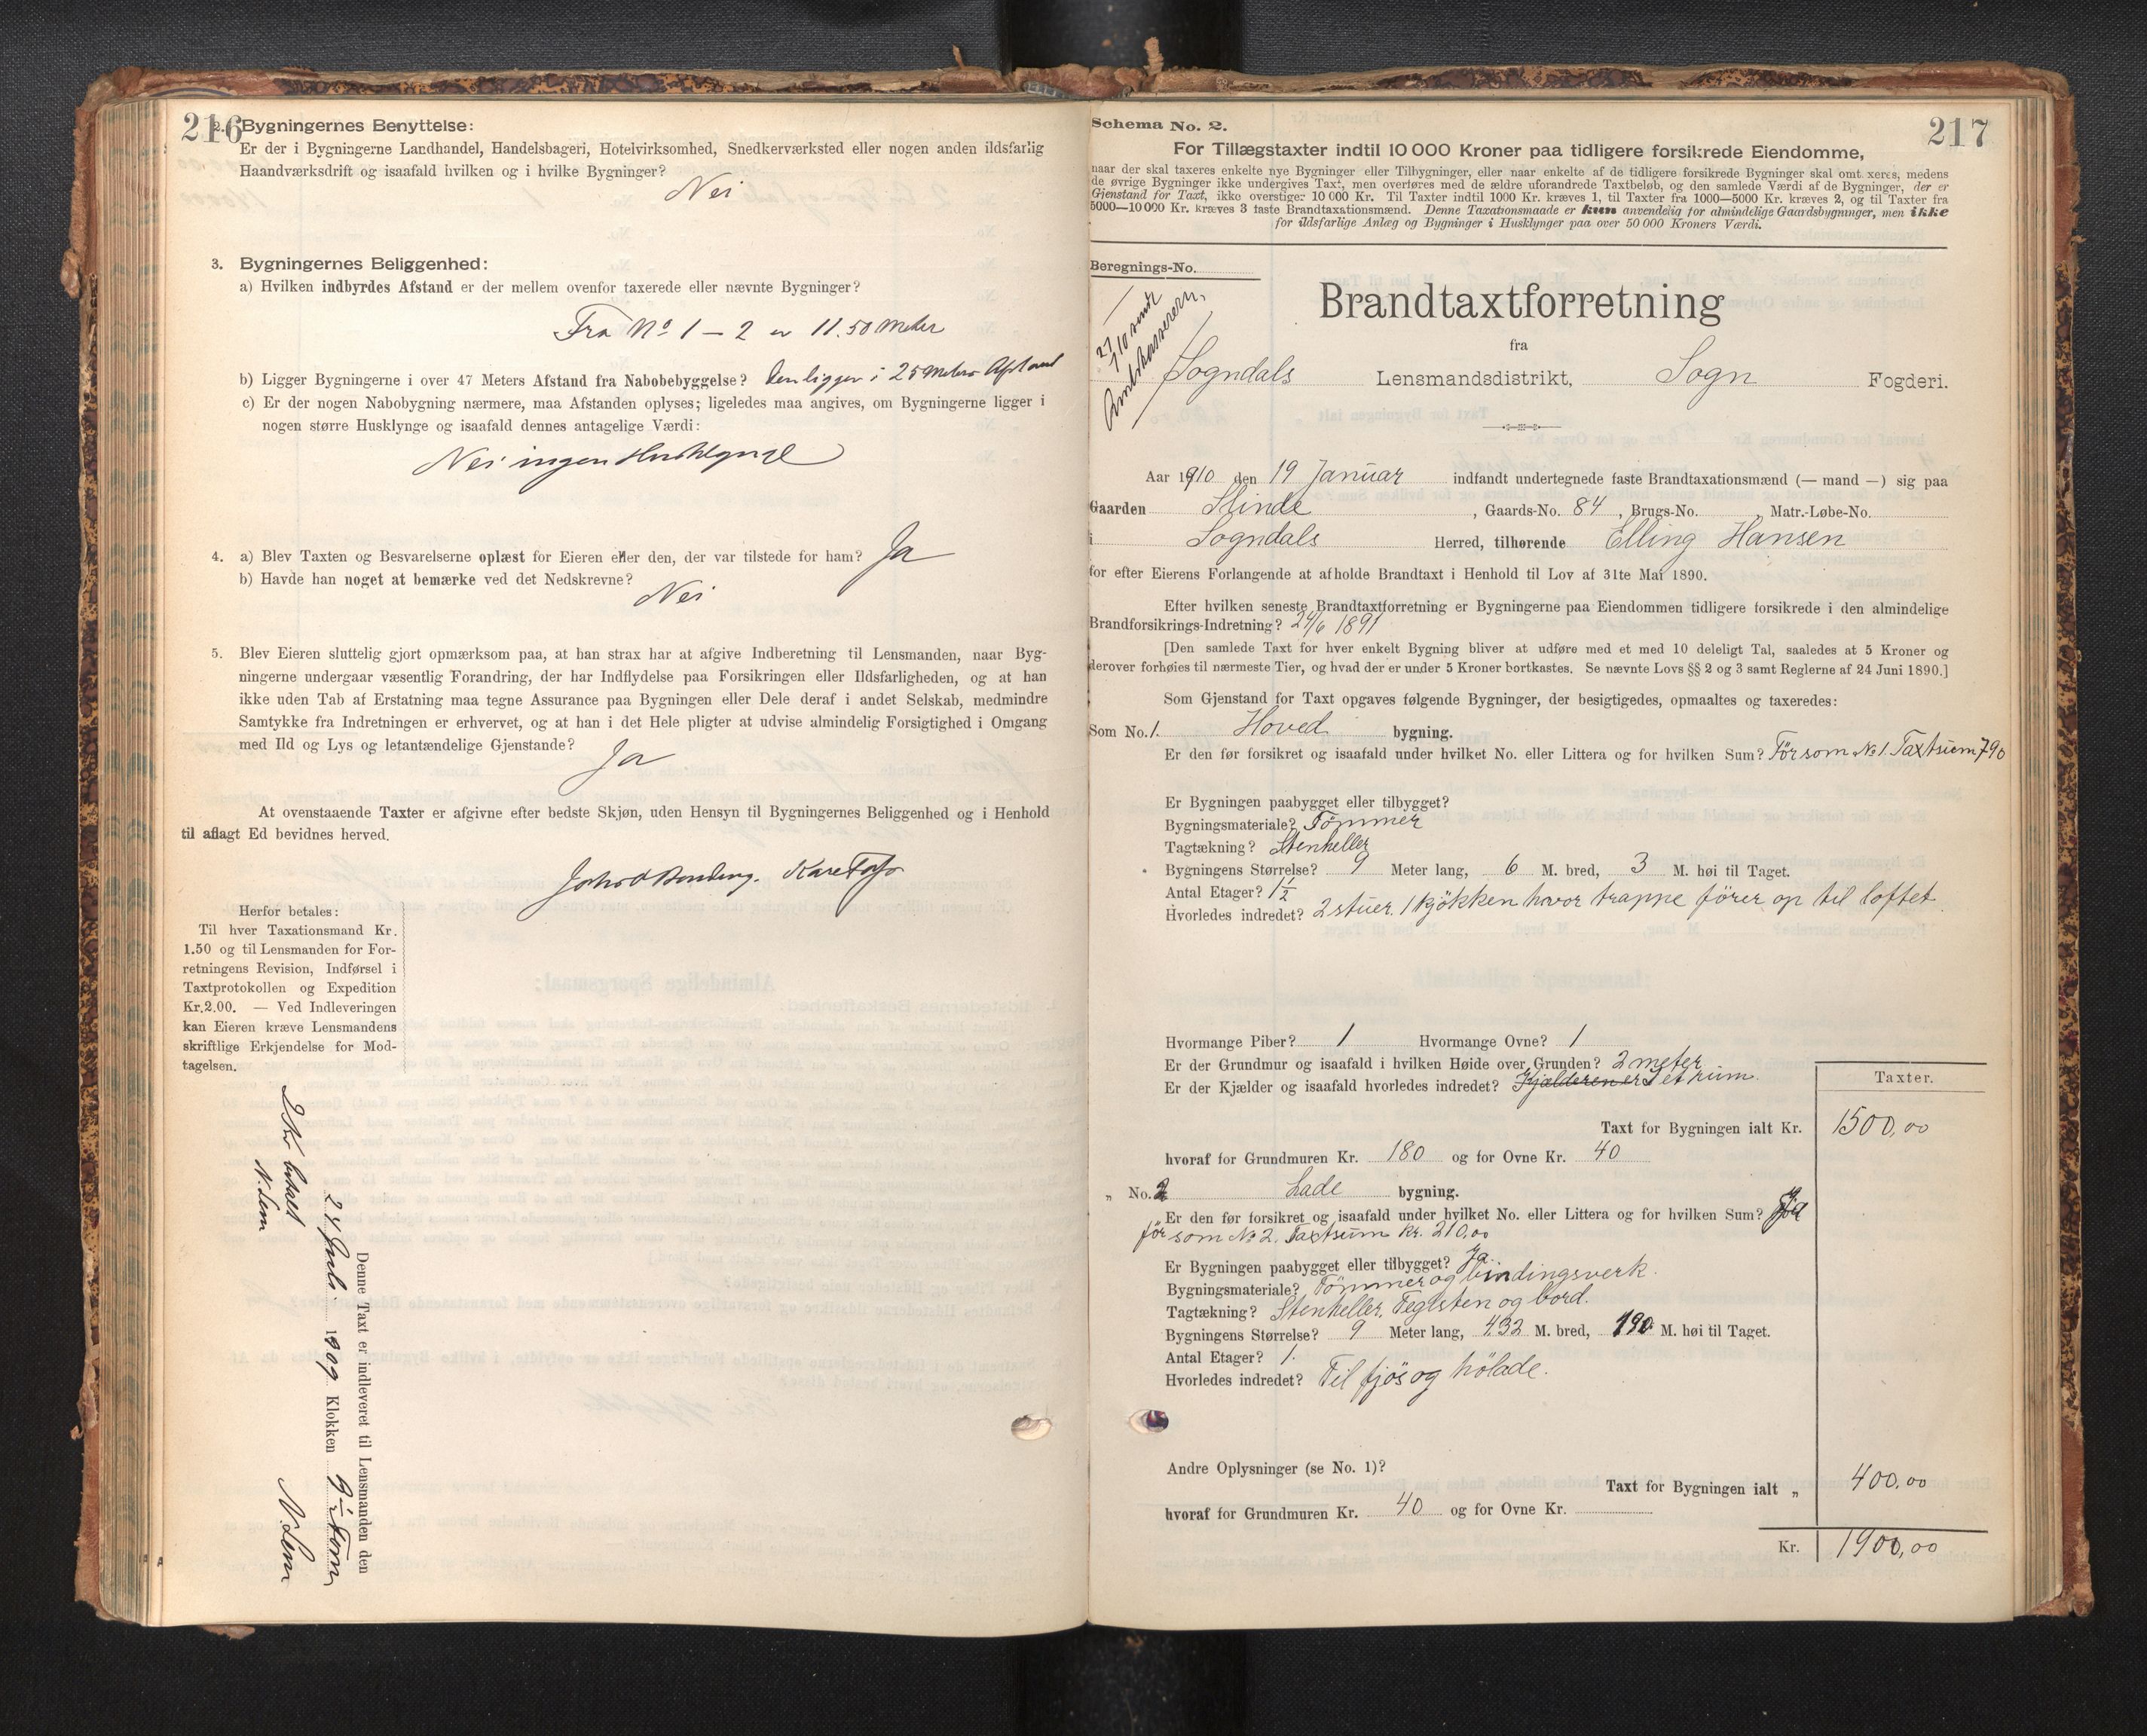 216
2. Bygningernes Benyttelse:
Er der i Bygningerne Landhandel, Handelsbageri, Hotelvirksomhed, Snedkerværksted eller nogen anden ildsfarlig
Haandværksdrift og isaafald hvilken og i hvilke Bygninger?
Nei
3. Bygningernes Beliggenhed:
a) Hvilken indbyrdes Afstand er der mellem ovenfor taxerede eller nævnte Bygninger?
Fra No 1 – 2 er 11.50 Meter
b) Ligger Bygningerne i over 47 Meters Afstand fra Nabobebyggelse? Den ligger i 25 Meters Afstand
c) Er der nogen Nabobygning nærmere, maa Afstanden oplyses; ligeledes maa angives, om Bygningerne ligger i
nogen større Husklynge og isaafald dennes antagelige Værdi:
Nei ingen Husklynge
4. a) Blev Taxten og Besvarelserne oplæst for Eieren eller den, der var tilstede for ham? Ja
b) Havde han noget at bemærke ved det Nedskrevne?
Nei
5. Blev Eieren sluttelig gjort opmærksom paa, at han strax har at afgive Indberetning til Lensmanden, naar Byg-
ningerne undergaar væsentlig Forandring, der har Indflydelse paa Forsikringen eller Ildsfarligheden, og at han
ikke uden Tab af Erstatning maa tegne Assurance paa Bygningen eller Dele deraf i andet Selskab, medmindre
Samtykke fra Indretningen er erhvervet, og at han i det Hele pligter at udvise almindelig Forsigtighed i Omgang
med Ild og Lys og letantændelige Gjenstande?
Ja
At ovenstaaende Taxter er afgivne efter bedste Skjøn, uden Hensyn til Bygningernes Beliggenhed og i Henhold
til aflagt Ed bevidnes herved.
Herfor betales:
Til hver Taxationsmand Kr.
1.50 og til Lensmanden for For-
retningens Revision, Indførsel i
Taxtprotokollen og Expedition
Kr.2.00. — Ved Indleveringen
kan Eieren kræve Lensmandens
skriftlige Erkjendelse for Mod-
tagelsen.
2 Kr betalt
N. Lem
Denne Taxt er indleveret til Lensmanden den
24 Juli 1909 Klokken 9½ Form
N. Lem
217
Schema No. 2.
For Tillægstaxter indtil 10 000 Kroner paa tidligere forsikrede Eiendomme,
naar der skal taxeres enkelte nye Bygninger eller Tilbygninger, eller naar enkelte af de tidligere forsikrede Bygninger skal omt xeres, medens
de øvrige Bygninger ikke undergives Taxt, men overføres med de ældre uforandrede Taxtbeløb, og den samlede Værdi af de Bygninger, der er
Gjenstand for Taxt, ikke overstiger 10 000 Kr. Til Taxter indtil 1000 Kr. kræves 1, til Taxter fra 1000—5000 Kr. kræves 2, og til Taxter fra
5000—10 000 Kr. kræves 3 faste Brandtaxationsmænd. Denne Taxationsmaade er kun anvendelig for almindelige Gaardsbygninger, men ikke
for ildsfarlige Anlæg og Bygninger i Husklynger paa over 50 000 Kroners Værdi.
Beregnings-No.
27/1 10 sendt
Amtskassereren
Brandtaxtforretning
fra
Sogndals Lensmandsdistrikt, Sogn Fogderi.
Aar 1910 den 19 Januar indfandt undertegnede faste Brandtaxationsmænd (— mand —) sig paa
Gaarden Stinde, Gaards-No. 84, Brugs-No. , Matr.-Løbe-No.
i Sogndals Herred, tilhørende Elling Hansen
for efter Eierens Forlangende at afholde Brandtaxt i Henhold til Lov af 31te Mai 1890.
Efter hvilken seneste Brandtaxtforretning er Bygningerne paa Eiendommen tidligere forsikrede i den almindelige
Brandforsikrings-Indretning? 24/6 1891
[Den samlede Taxt for hver enkelt Bygning bliver at udføre med et med 10 deleligt Tal, saaledes at 5 Kroner og
derover forhøies til nærmeste Tier, og hvad der er under 5 Kroner bortkastes. Se nævnte Lovs §§ 2 og 3 samt Reglerne af 24 Juni 1890.]
Som Gjenstand for Taxt opgaves følgende Bygninger, der besigtigedes, opmaaltes og taxeredes:
Som No. 1. Hoved bygning.
Er den før forsikret og isaafald under hvilket No. eller Littera og for hvilken Sum? Før som No 1. Taxtsum 790
Er Bygningen paabygget eller tilbygget?
Bygningsmateriale? Tömmer
Tagtækning? Stenheller
Bygningens Størrelse? 9 Meter lang, 6 M. bred, 3 M. høi til Taget.
Antal Etager? 1½
Hvorledes indredet? 2 stuer. 1 kjökken hvor trappe förer op til loftet
Hvormange Piber? 1 Hvormange Ovne? 1
Er der Grundmur og isaafald i hvilken Høide over Grunden? 2 meter
Er der Kjælder og isaafald hvorledes indredet? Kjælderen er I et rum.
Taxter.
Taxt for Bygningen ialt Kr. 1500,00
hvoraf for Grundmuren Kr. 180 og for Ovne Kr. 40
„ No. 2 Lade bygning.
Er den før forsikret og isaafald under hvilket No. eller Littera og for hvilken Sum? Ja
før som No 2. Taxtsum Kr. 210,00
Er Bygningen paabygget eller tilbygget? Ja.
Bygningsmateriale? Tömmer og bindingsverk.
Tagtækning? Stenheller, Teglsten og bord.
Bygningens Størrelse? 9 Meter lang, 432 M. bred, 190 M. høi til Taget.
Antal Etager? 1.
Hvorledes indredet? Til fjös og hölade.
Andre Oplysninger (se No. 1)?
Taxt for Bygningen ialt „ 400,00
hvoraf for Grundmuren Kr. 40 og for Ovne Kr.
Kr. 1900,00